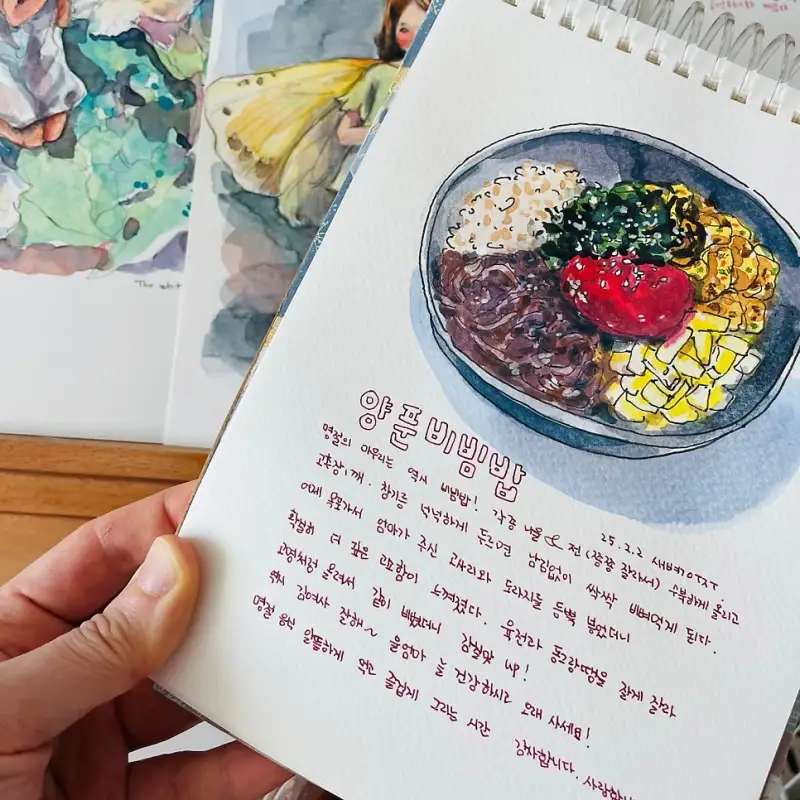 양푼비빔밥
25. 2. 2 새벽
명절의 마무리는 역시 비빔밥! 각종 나물 & 전(종종 잘라서) 수북하게 올리고
고추장, 깨, 참기름 넉넉하게 두르면 남김없이 싹싹 비벼먹게 된다.
어제 목포가서 엄마가 주신 고사리와 도라지를 듬뿍 넣었더니
확실히 더 깊은 고소함이 느껴졌다. 육전과 동그랑땡을 잘게 잘라
고명처럼 올려서 같이 비볐더니 감칠맛 up!
역시 김여사 잘해~ 울엄마 늘 건강하시고 오래 사세요!
명절 음식 알뜰하게 먹고 즐겁게 그리는 시간 감사합니다. 사랑합니
The